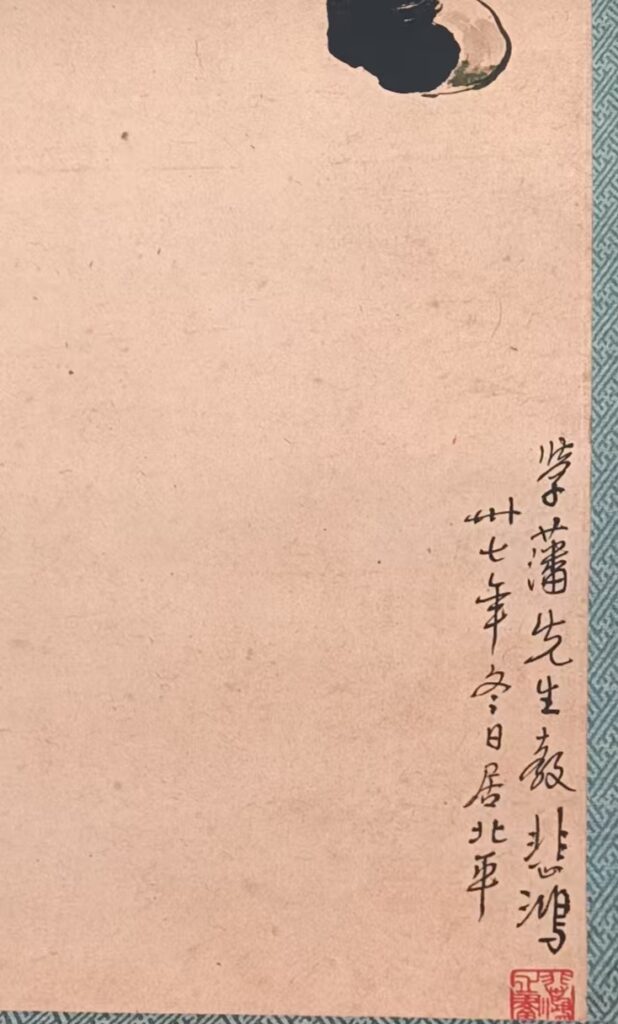 學藩先生教 悲鴻
卅七年冬日居北平
悲鴻